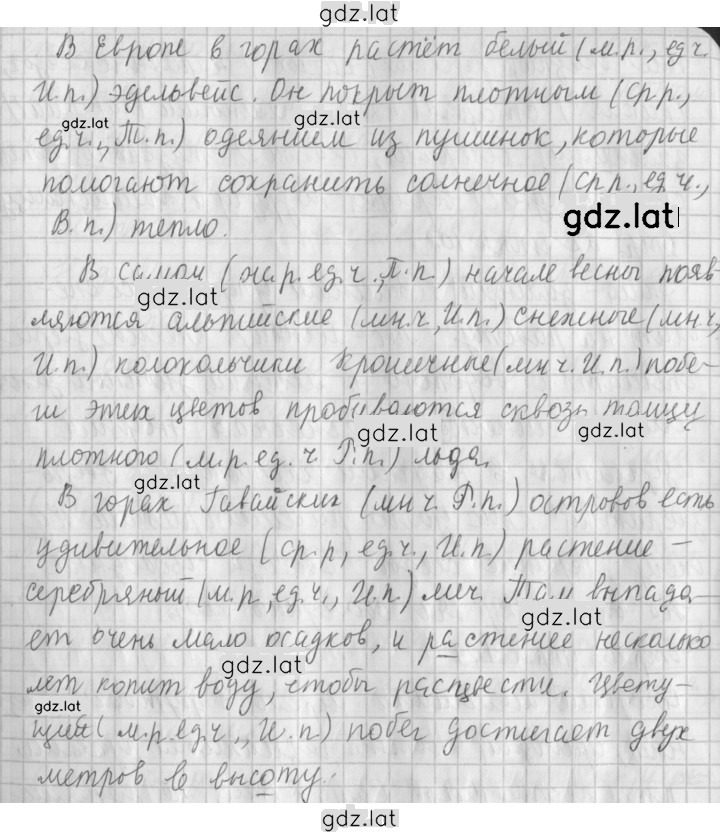 gdz.lat
В Европе в горах растёт белый (м.р., ед ч.
И.п.) эдельвейс. Он покрыт плотным (ср.р.,
gdz.lat
gdz.lat
ед.ч., Т.п.) одеянием из пушинок, которые
помогают сохранить солнечное (ср.р., ед.ч.,
gdz.lat
В.п.) тепло.
В самом (ж.р. ед.ч., П.п.) начале весны появ-
gdz.lat
ляются альпийские (мн.ч, И.п.) снежные (мн.ч,
И.п.) колокольчики Крошечные (мн ч. И.п.) побе-
ги этих цветов пробиваются сквозь толщу
gdz.lat
gdz.lat
плотного (м.р. ед. ч. Р.п.) льда.
gdz.lat
В горах Гавайских (мн ч. Р.п.) островов есть
удивительное (ср.р, ед.ч., И.п.) растение –
серебряный (м.р, ед.ч., И.п.) меч. Там выпада-
gdz.lat
ет очень мало осадков, и растение несколько
gdz.lat
лет копит воду, чтобы расцвести. Цвету-
gdz.lat
щий (м.р. ед.ч., И.п.) побег достигает двух
метров в высоту.
gdz.lat